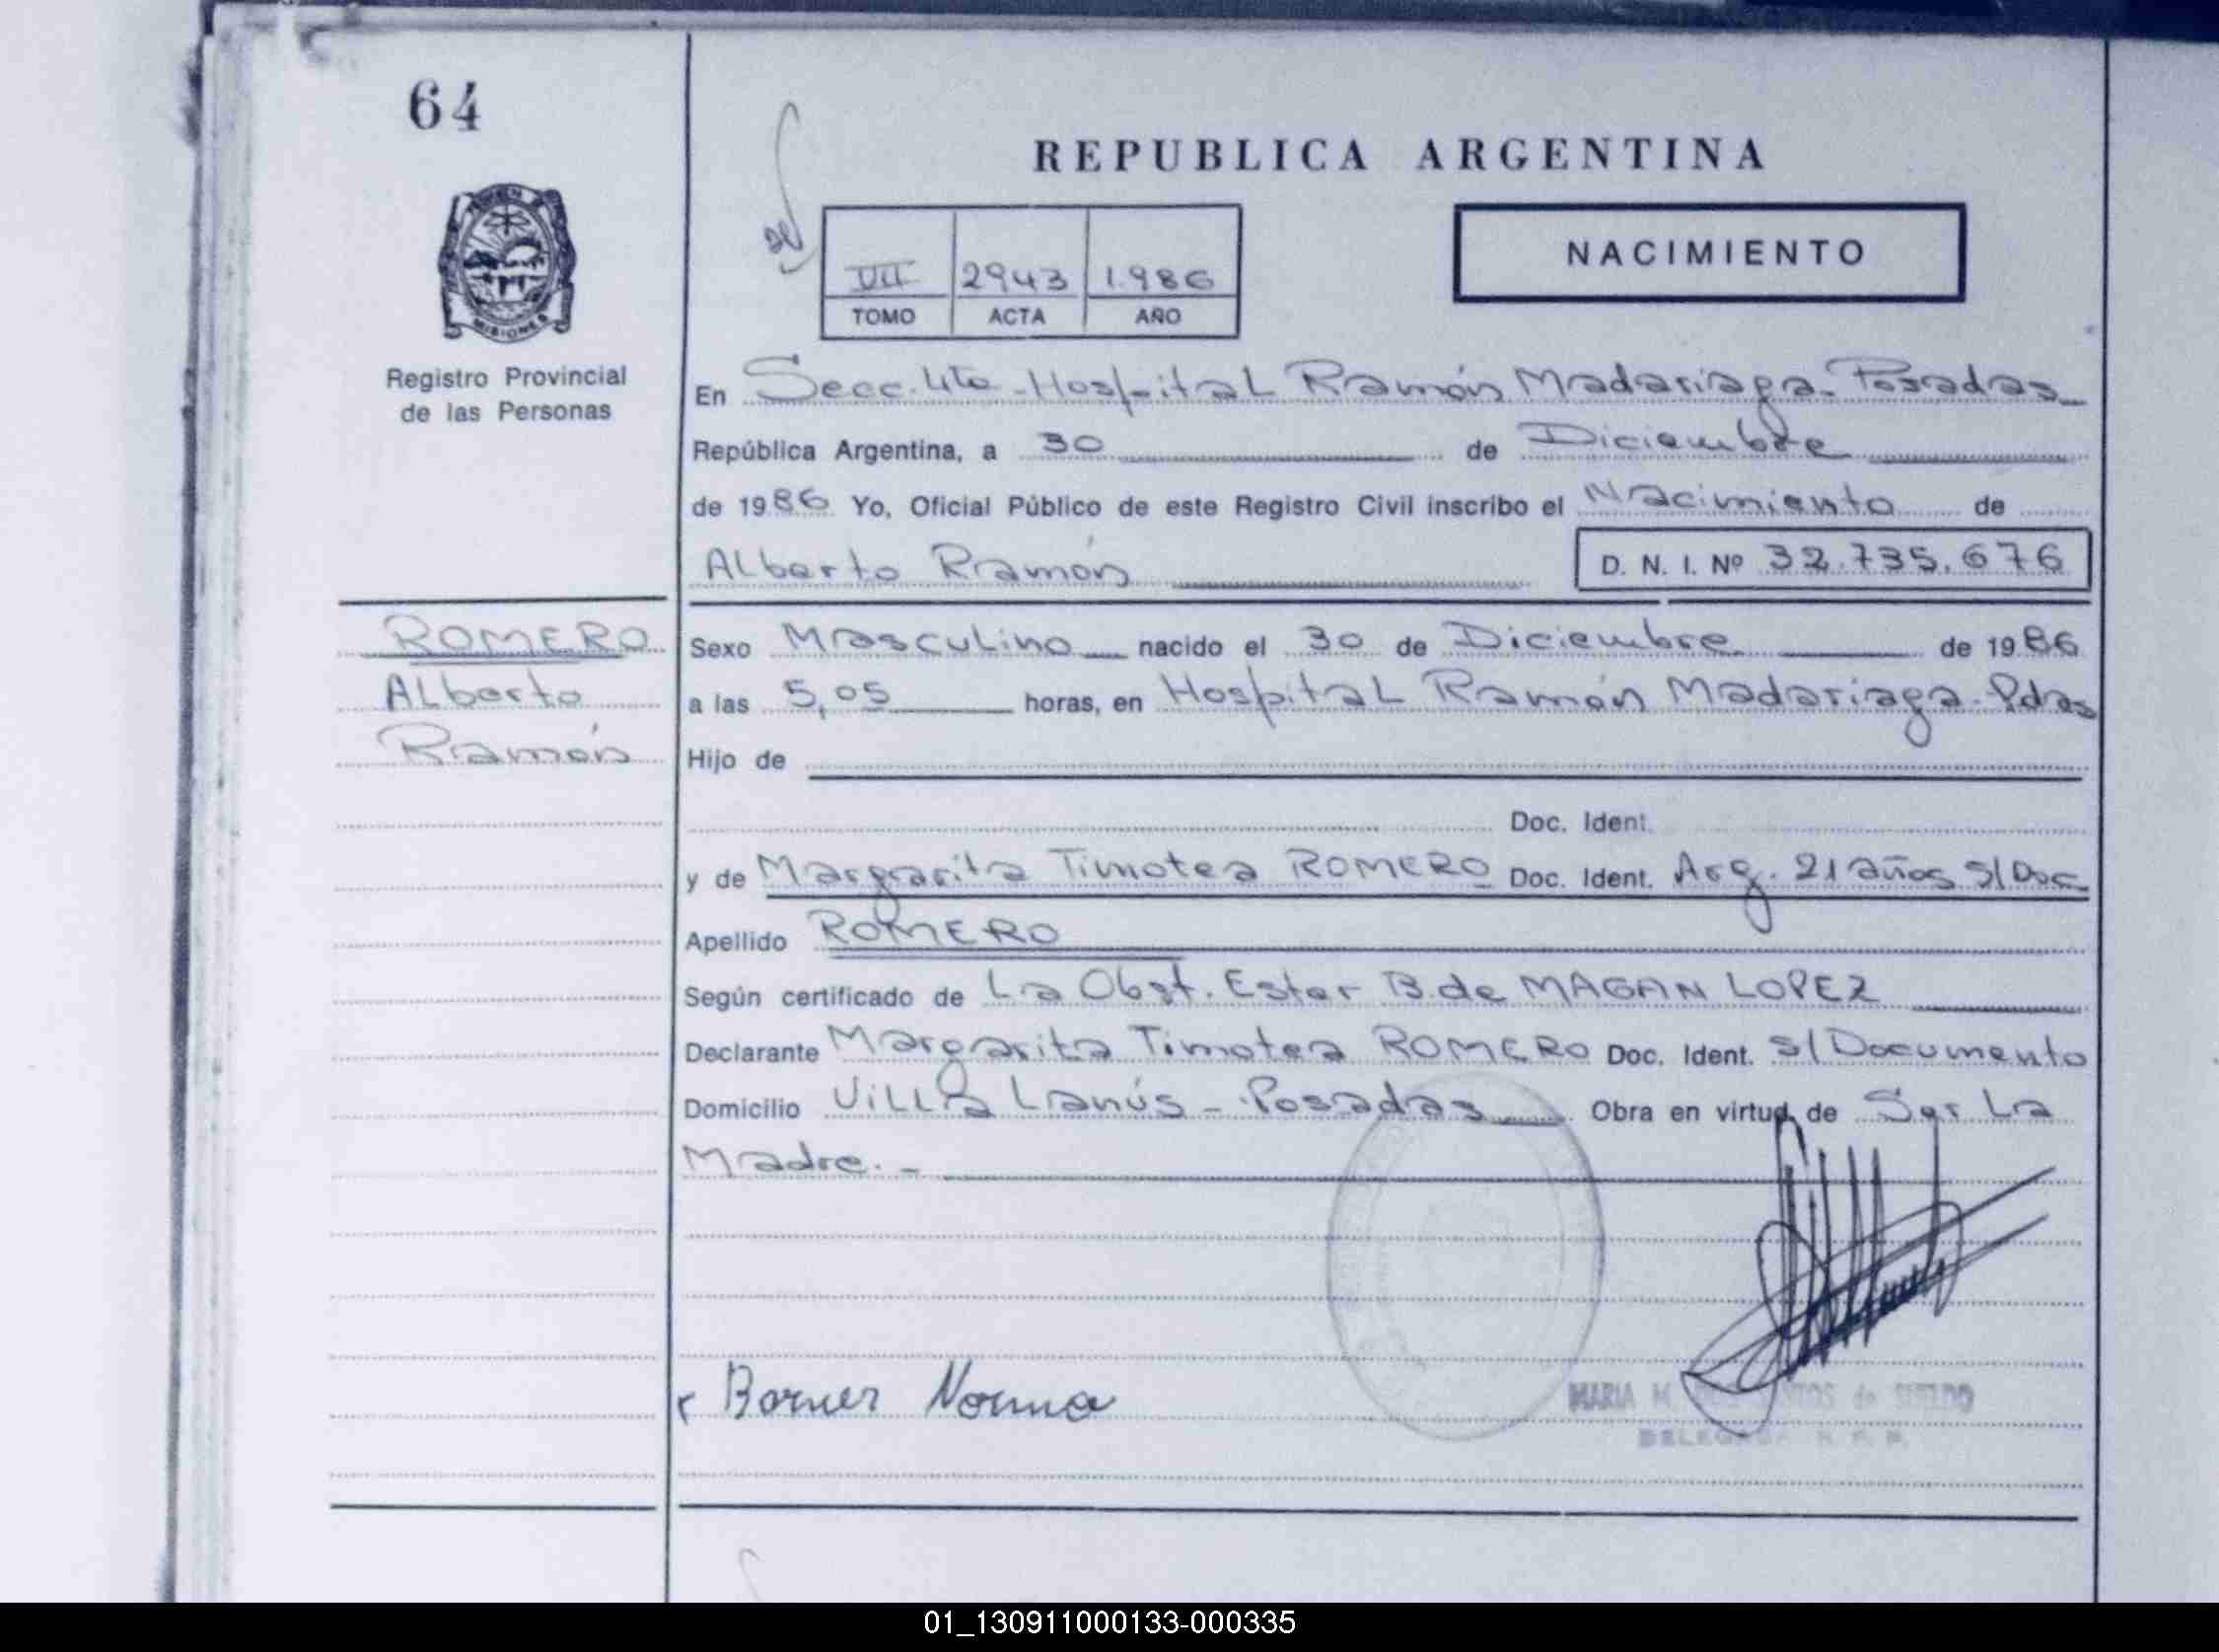 64
REPUBLICA ARGENTINA
NACIMIENTO
VII 2943 1.986
TOMO ACTA AÑO
MISIONES
Registro Provincial
de las Personas
En Secc. 4ta - Hospital Ramón Madariaga - Posadas
República Argentina, a 30 de Diciembre
de 1986 Yo, Oficial Público de este Registro Civil inscribo el Nacimiento de
Alberto Ramón D. N. I. Nº 32.735.676
ROMERO
Alberto
Ramón
Sexo Masculino nacido el 30 de Diciembre de 1986
a las 5,05 horas, en Hospital Ramón Madariaga - Pdas
Hijo de
Doc. Ident.
y de Margarita Timotea ROMERO Doc. Ident. Arg. 21 años S/Doc
Apellido ROMERO
Según certificado de La Obst. Ester B. de MAGAN LOPEZ
Declarante Margarita Timotea ROMERO Doc. Ident. S/Documento
Domicilio Villa Lanús - Posadas Obra en virtud de Ser La
Madre. -
Norma
MARIA M. de SUELDO
01_130911000133-000335